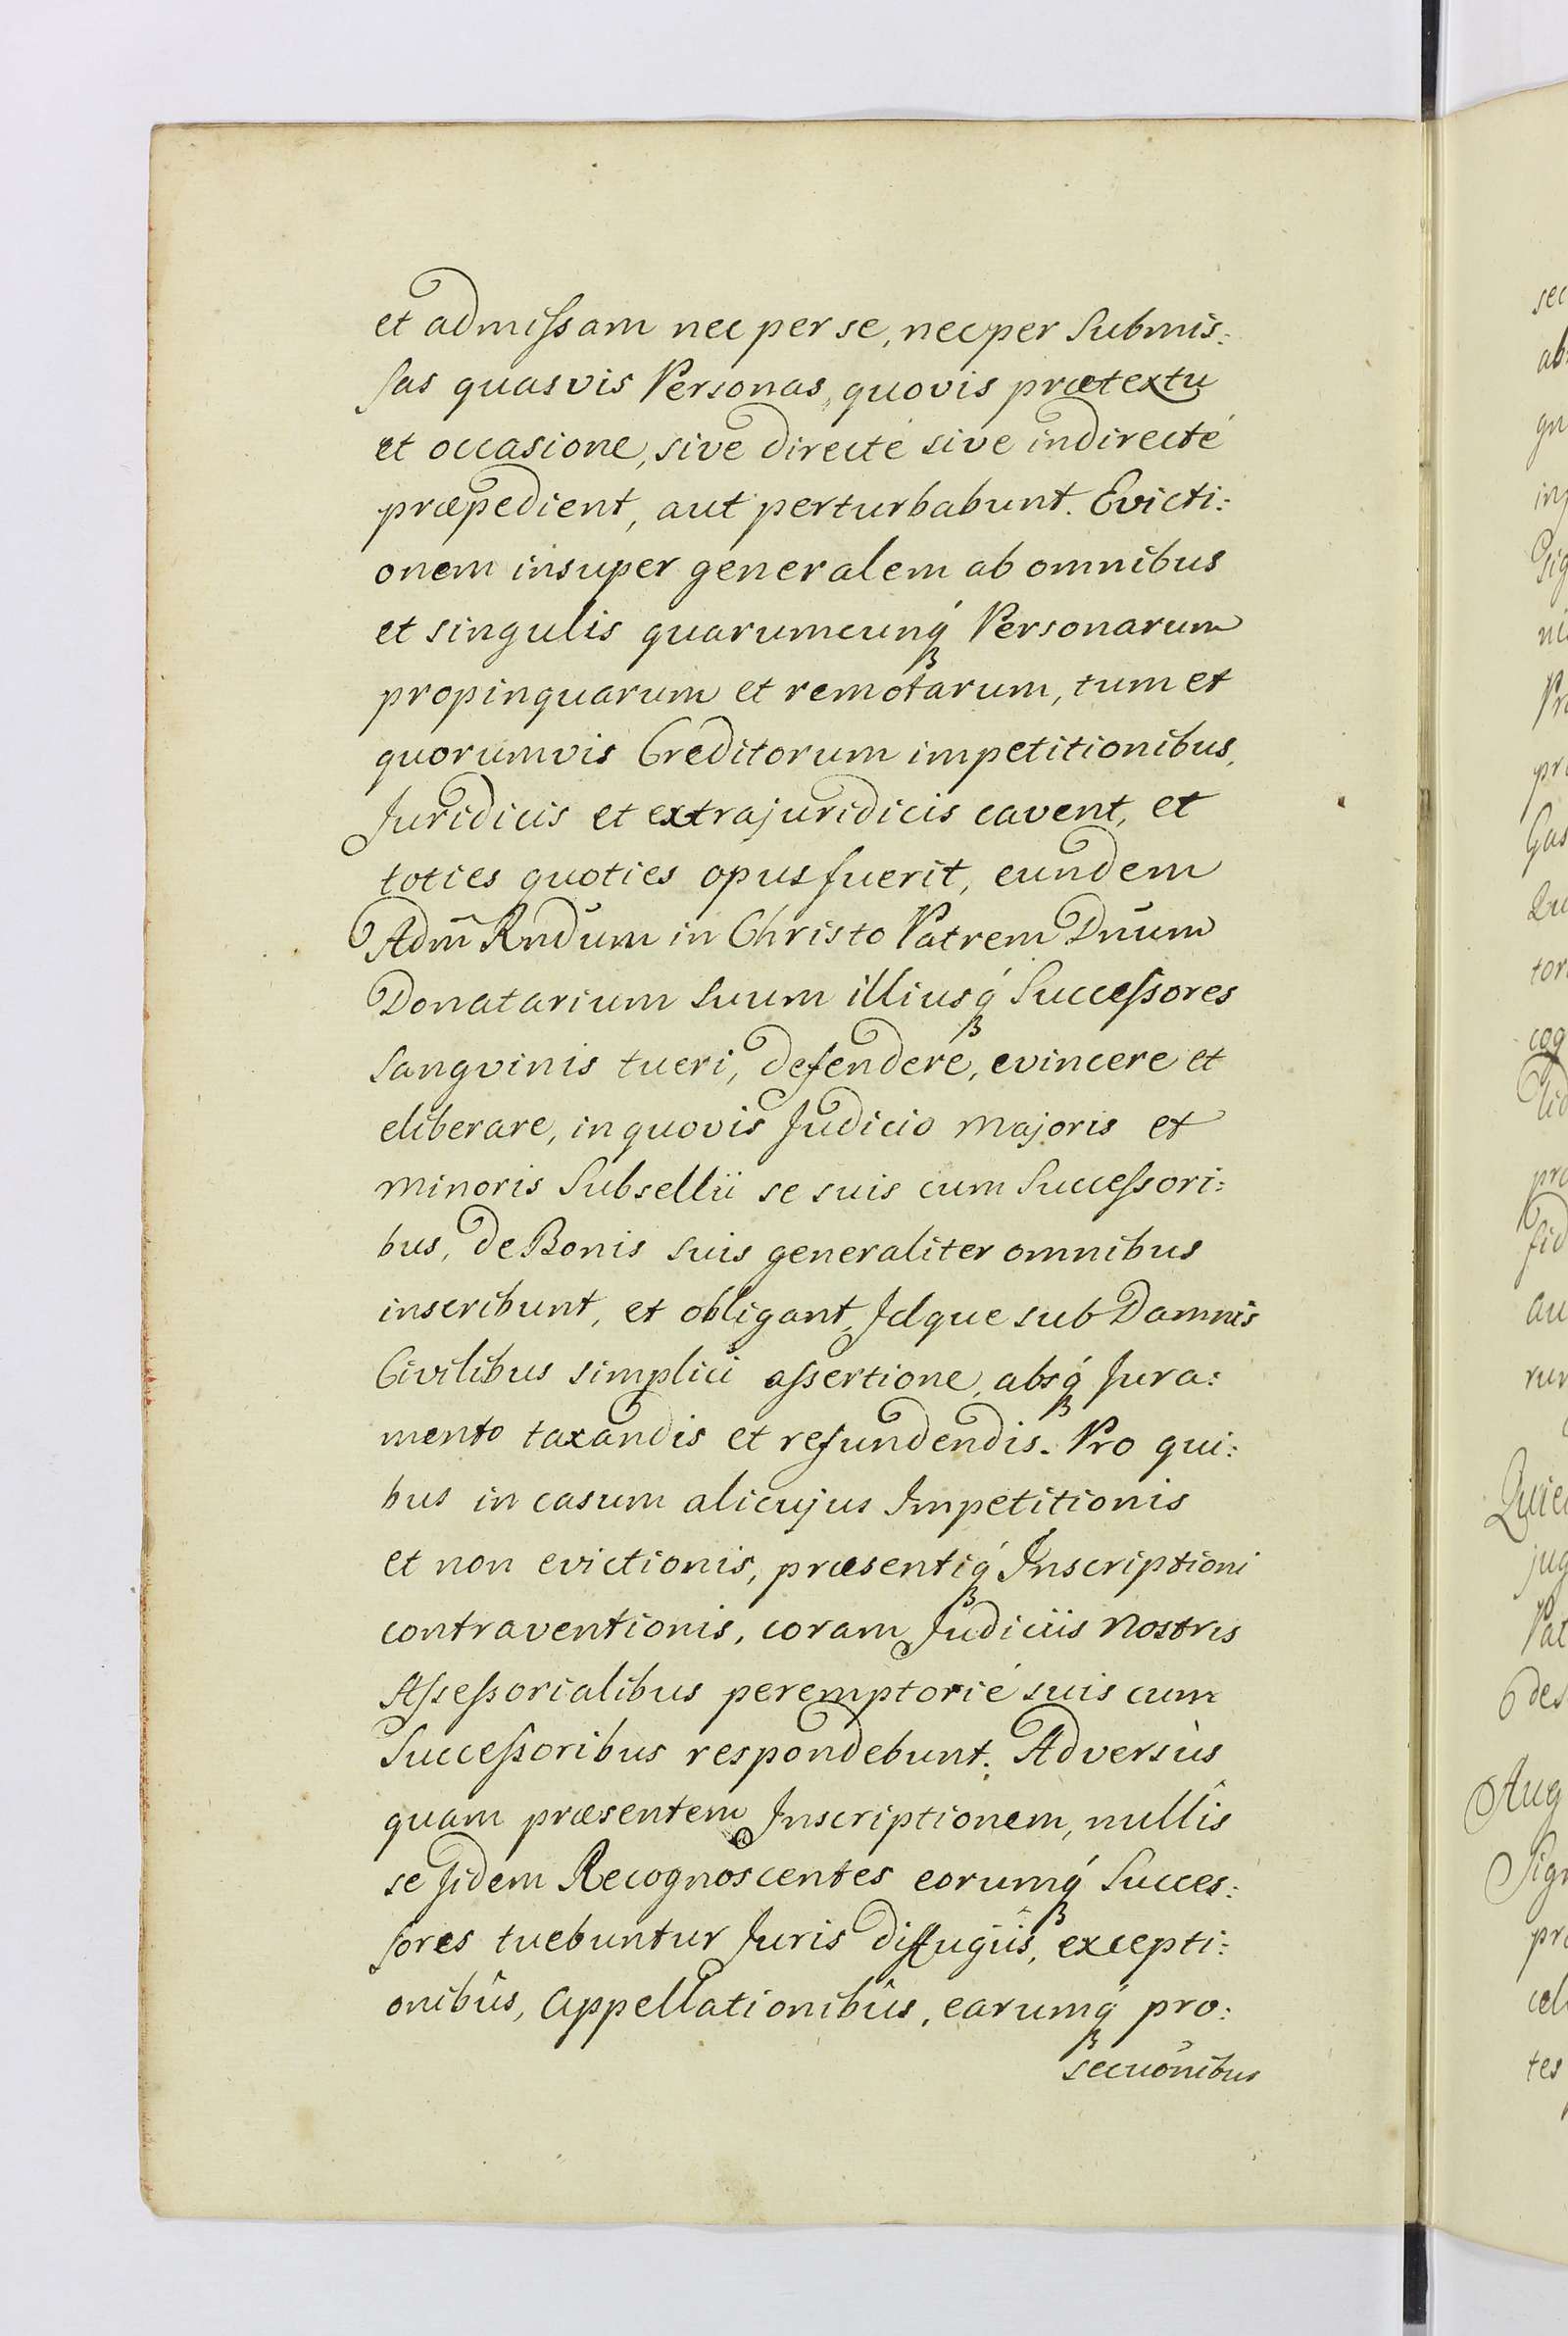 et admissam nec per se, nec per Submis:
sas quasvis Personas, quovis prætextu
et occasione, sive directé sive indirecté
præpedient, aut perturbabunt. Evicti:
onem insuper generalem ab omnibus
et singulis quarumcunq́ Personarum
propinquarum et remotarum, tum et
quorumvis Creditorum impetitionibus,
Juridicis et extrajuridicis cavent, et
toties quoties opus fuerit, eundem
Adm̃ Rndum in Christo Patrem Dnum
Donatarium Suum illiusq́ Successores
Sangvinis tueri, defendere, evincere et
eliberare, in quovis Judicio Majoris et
Minoris Subsellii se suis cum Successori:
bus, de Bonis suis generaliter omnibus
inscribunt, et obligant, Idque sub Damnis
Civilibus simplici assertione, absq́ Jura:
mento taxandis et refundendis. Pro qui:
bus in casum alicujus Impetitionis
et non evictionis, præsentiq́ Inscriptioni
contraventionis, coram Judiciis Nostris
Assessorialibus peremptorié suis cum
Successoribus respondebunt; Adversùs
quam præsentem Inscriptionem, nullîs
se Iidem Recognoscentes eorumq́ Succes:
sores tuebuntur Juris diffugiîs, excepti:
onibûs, Appellationibûs, earumq́ pro:
secuõnibus
sec
ab
in
Pr
pr
Gas
tor
cog
pro
fid
au
rum
jug
Pat
des
Aug
Sign
pro
cel
tes